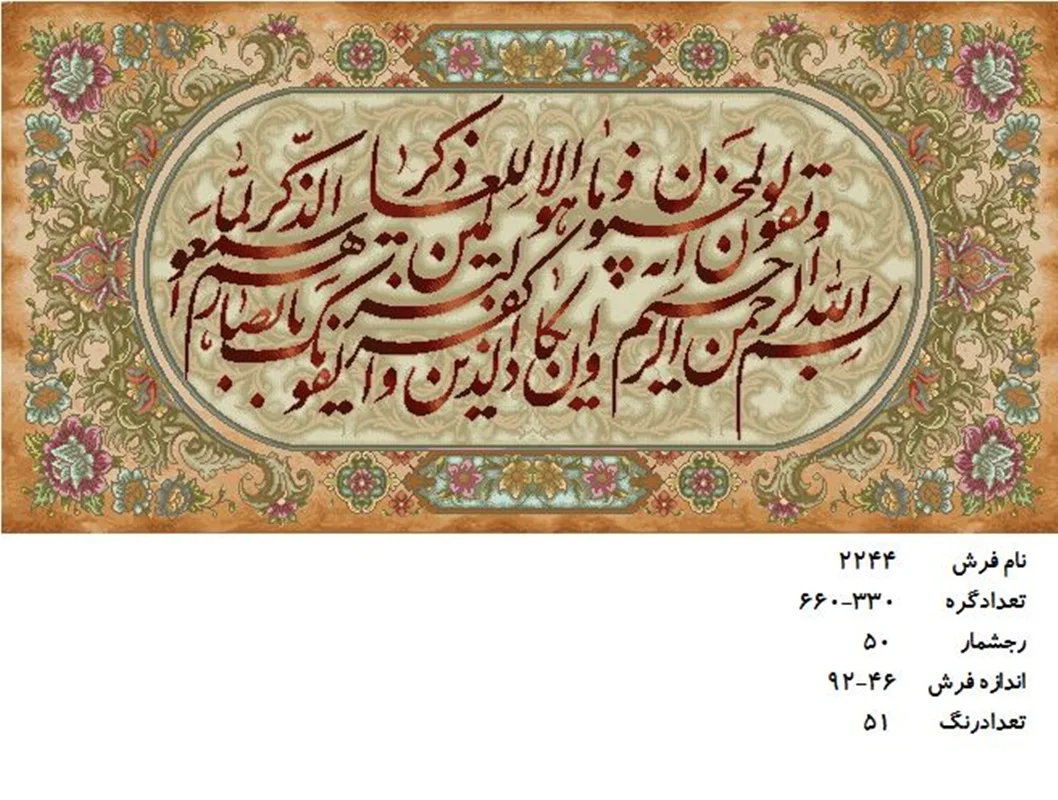 بسم الله الرحمن الرحیم
وان یکاد الذین کفروا لیزلقونک بابصارهم
لما سمعوا الذکر
ویقولون انه لمجنون
وما هو الا ذکر للعالمین
نام فرش ۲۲۴۴
تعدادگره ۶۶۰-۳۳۰
رجشمار ۵۰
اندازه فرش ۹۲-۴۶
تعدادرنگ ۵۱